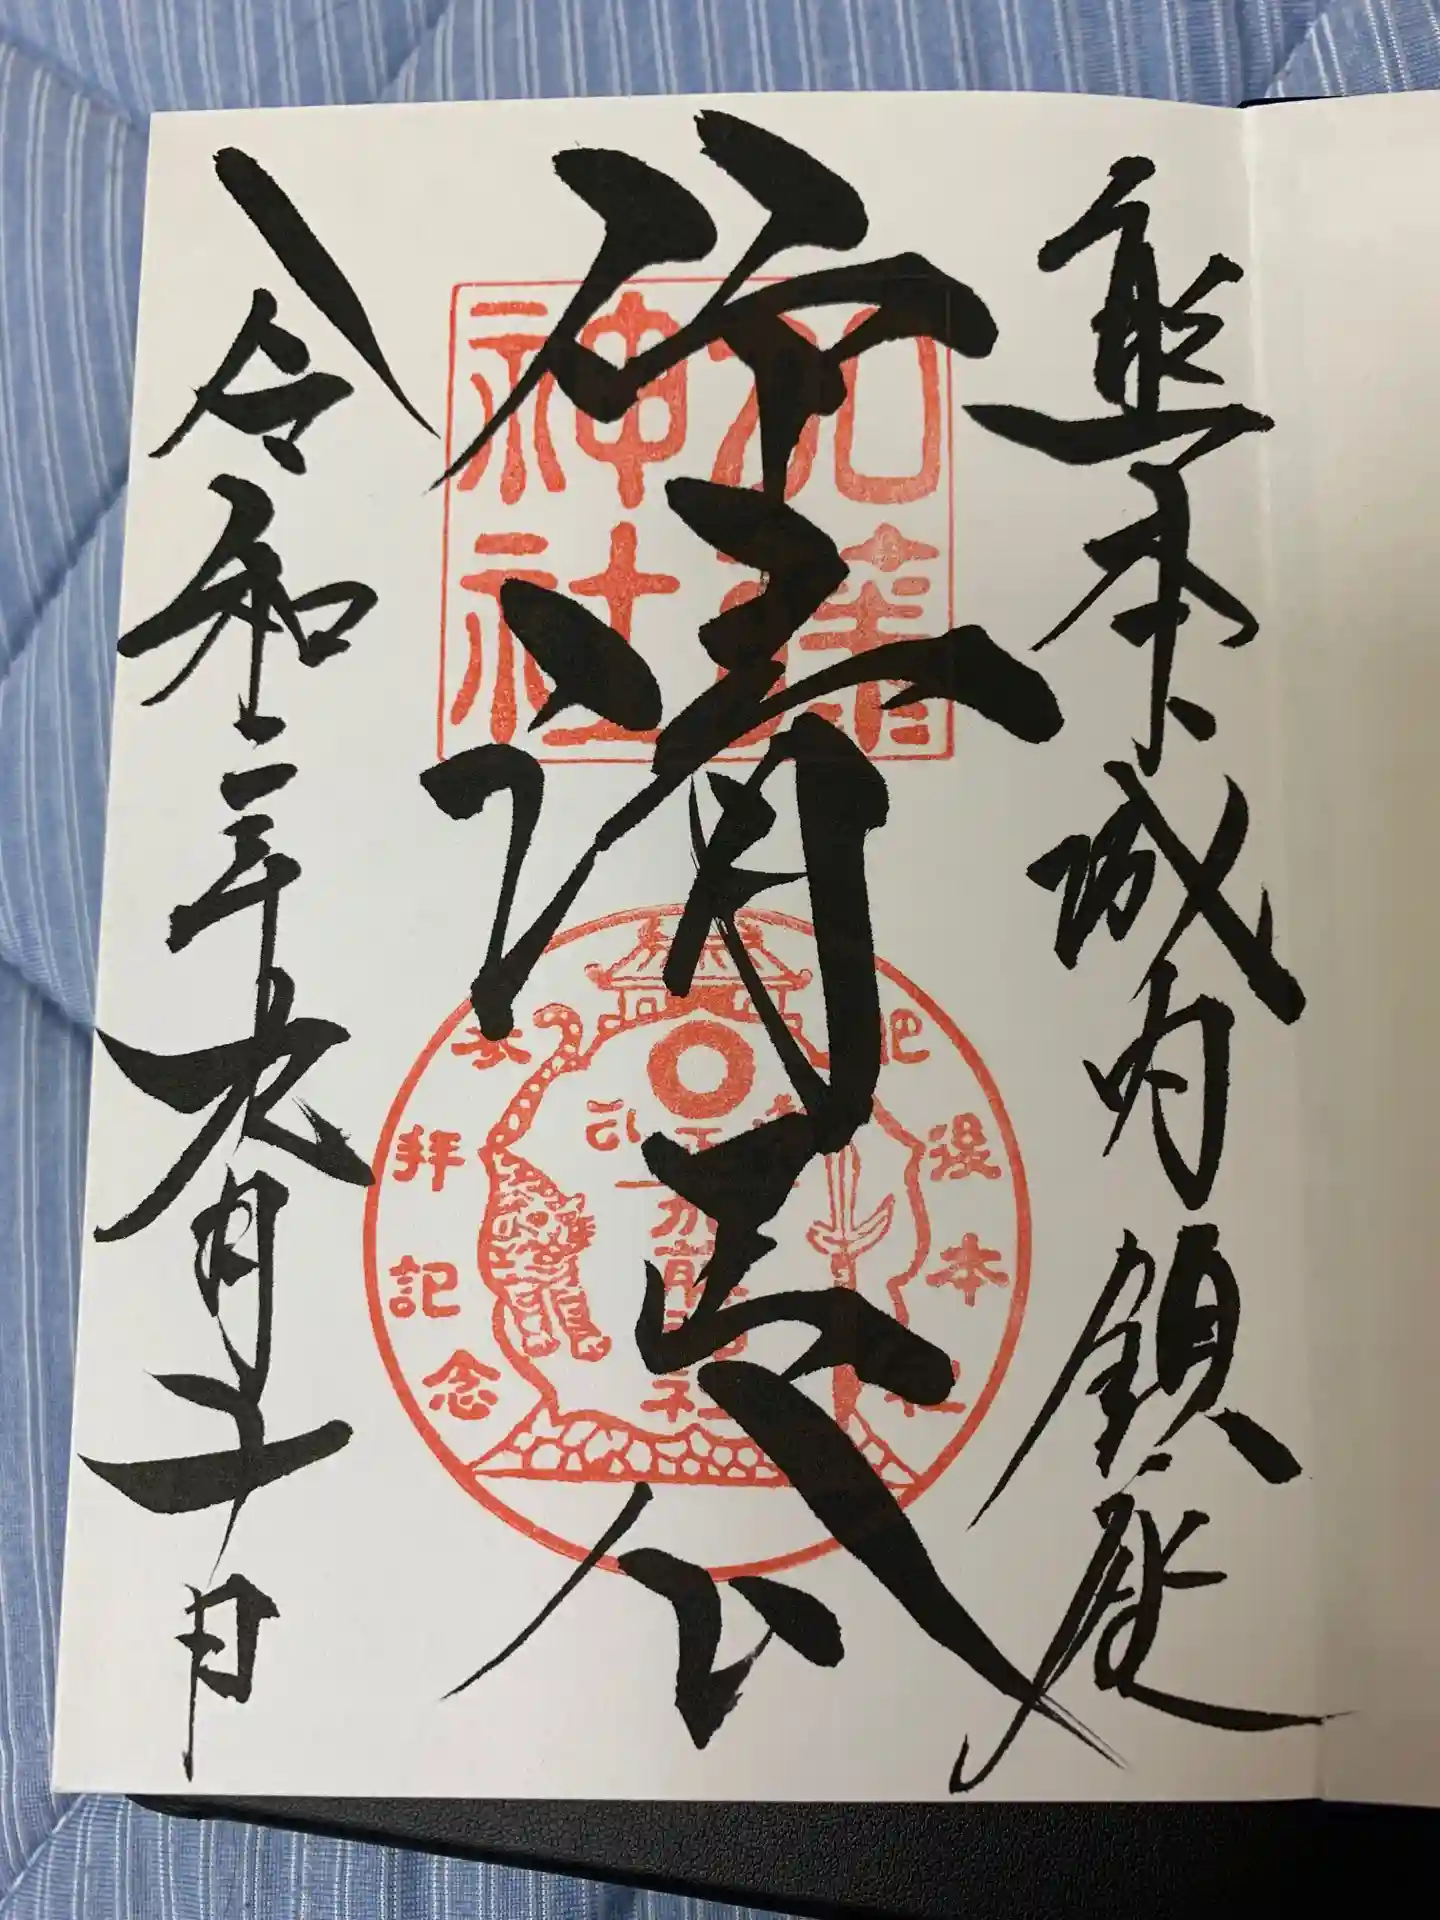 熊本城内鎮座
仰清正公
令和 年九月 日
加藤
神社
肥後本社
参拝記念
加藤神社